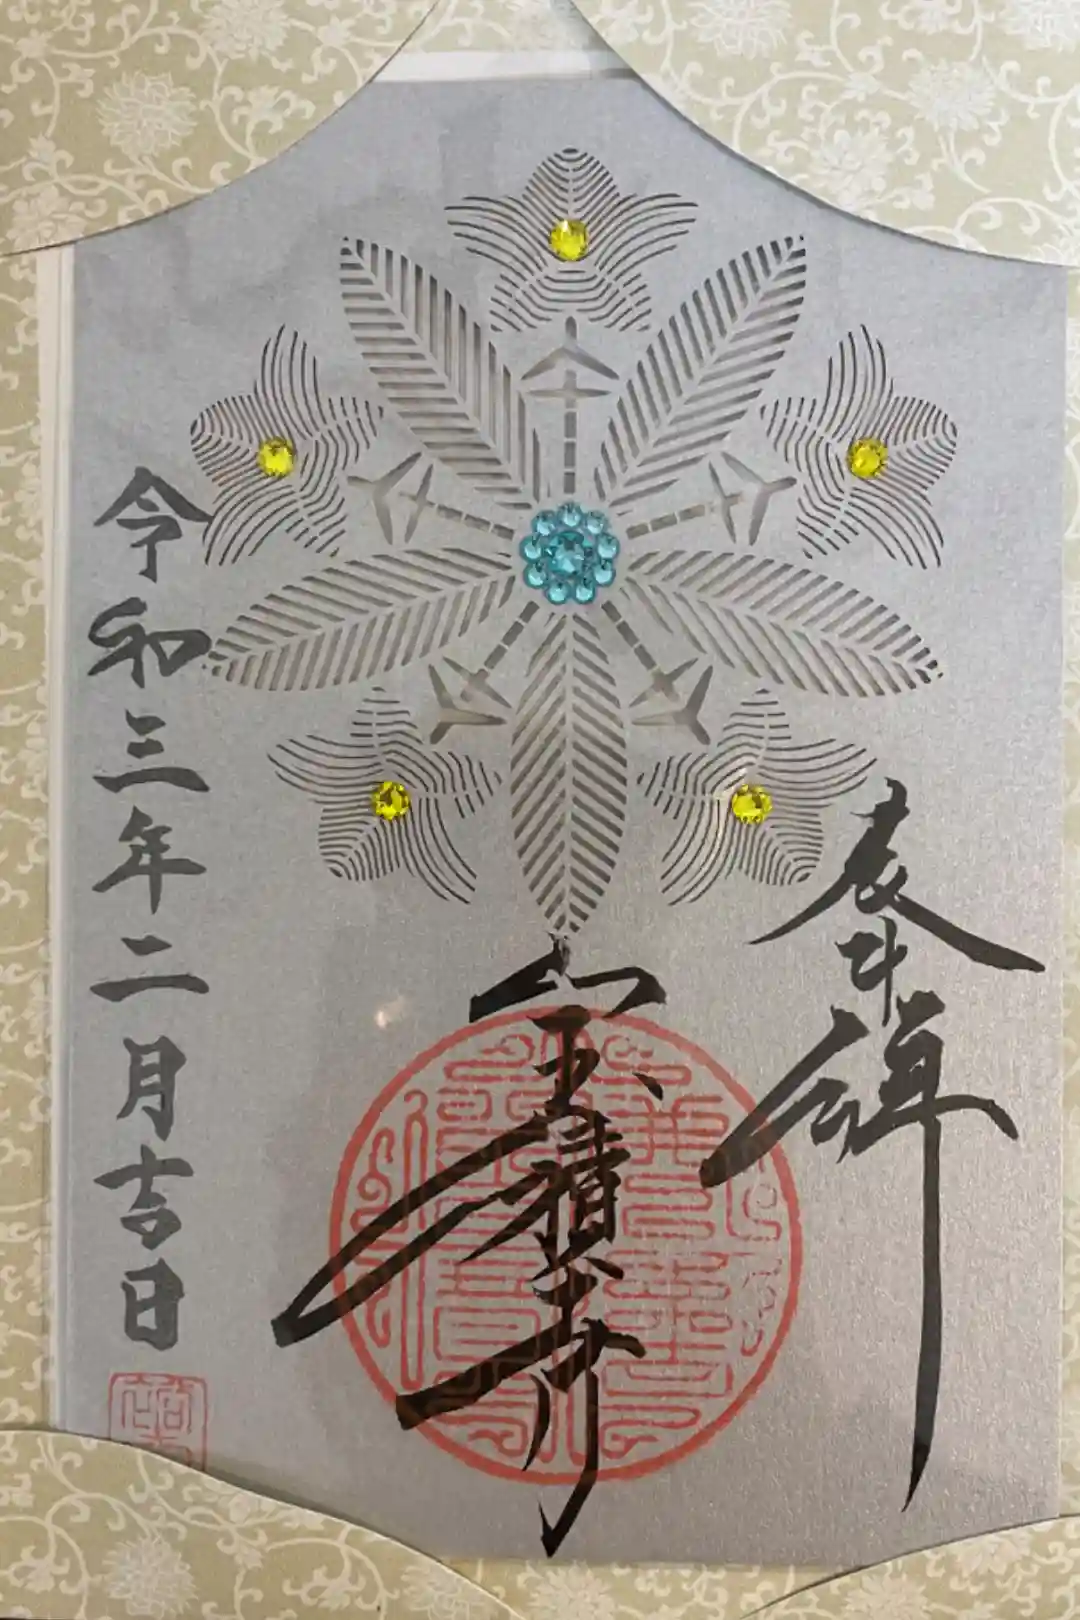 奉拝
宝積寺
令和三年二月吉日